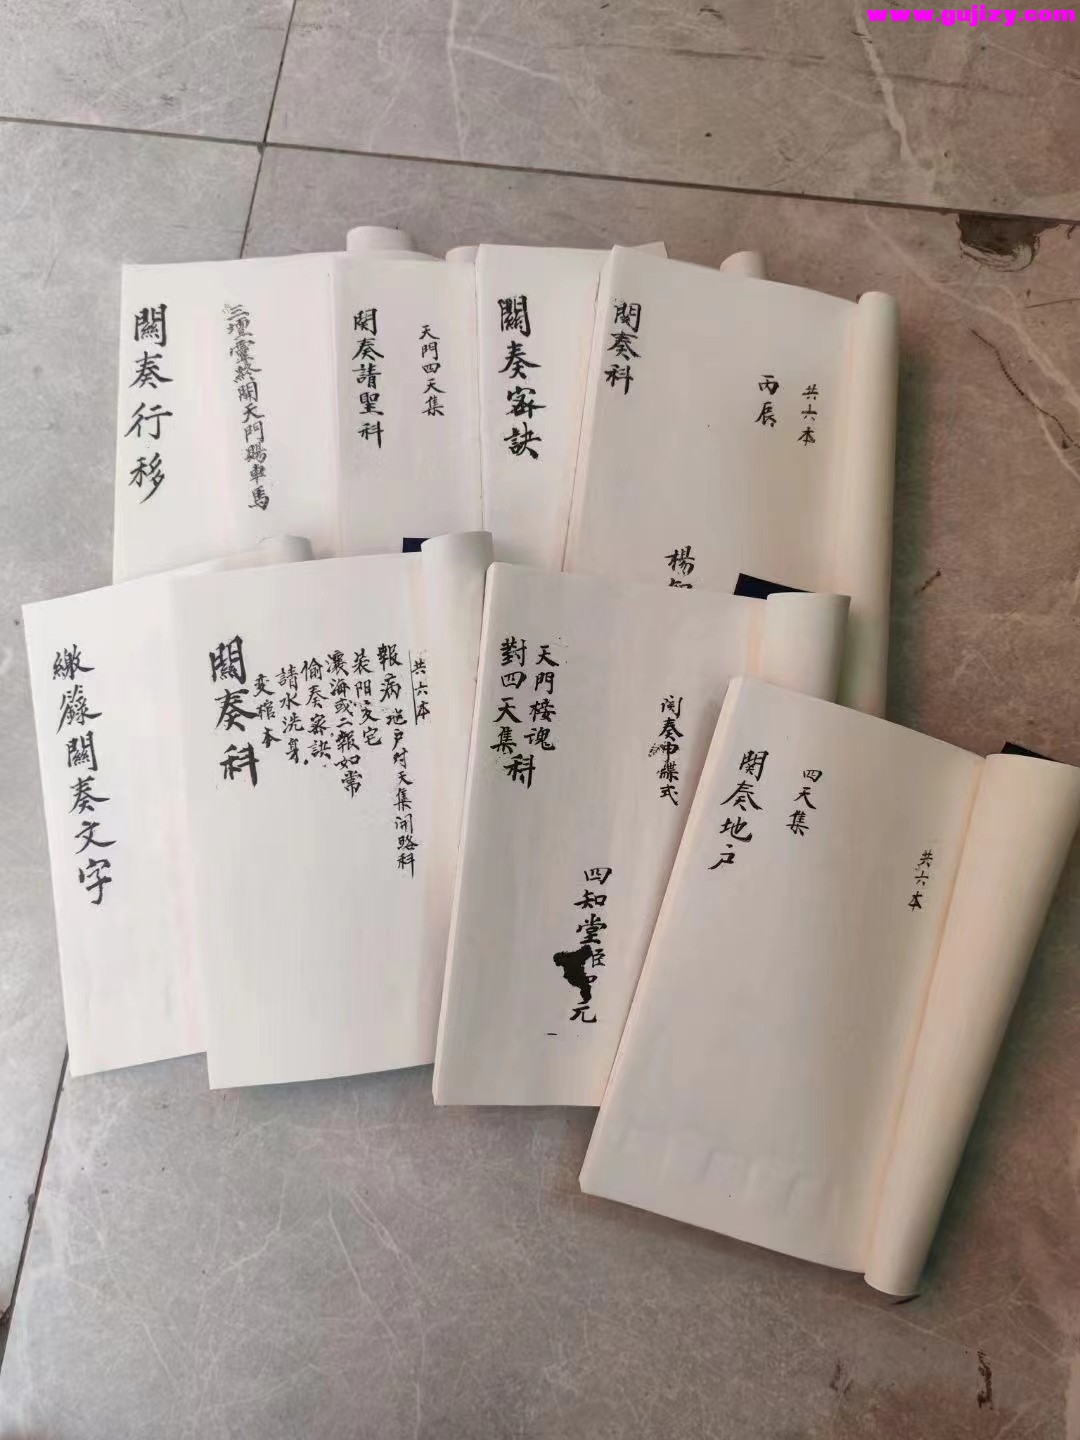 www.gujizy.com
關奏行移
三壇靈終開天門賜車馬
関奏請聖科
天門四天集
關奏密訣
関奏科
丙辰
共六本
楊
繳籙關奏文字
關奏科
報病
共六本
地户对天集闭路科
装阳交宅
瀼海或二報如常
偷奏密訣
請水洗身
变棺本
天門接魂
對四天集科
関奏申牒式
四知堂
元
関奏地户
四天集
共六本